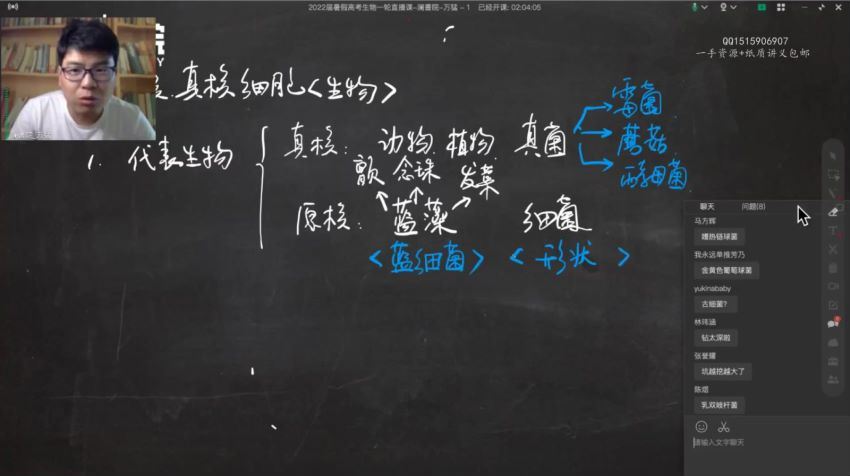 2022届暑假高考生物一轮直播课-澜書院-万猛 - 1 已经开课: 02:04:05
QQ1515906907
一手资源+纸质讲义包邮
院
真核细胞<生物>
1. 代表生物
真核: 动物 植物 真菌
霉菌
蘑菇
酵母菌
颤 念珠 发菜
原核: 蓝藻 细菌
<蓝细菌> <形状 >
聊天 问题(8)
马方辉
嗜热链球菌
我永远单推芳乃
金黄色葡萄球菌
yukinababy
古细菌?
林玮涵
钻太深啦
张誉耀
坑越挖越大了
陈煜
乳双岐杆菌
请输入文字聊天